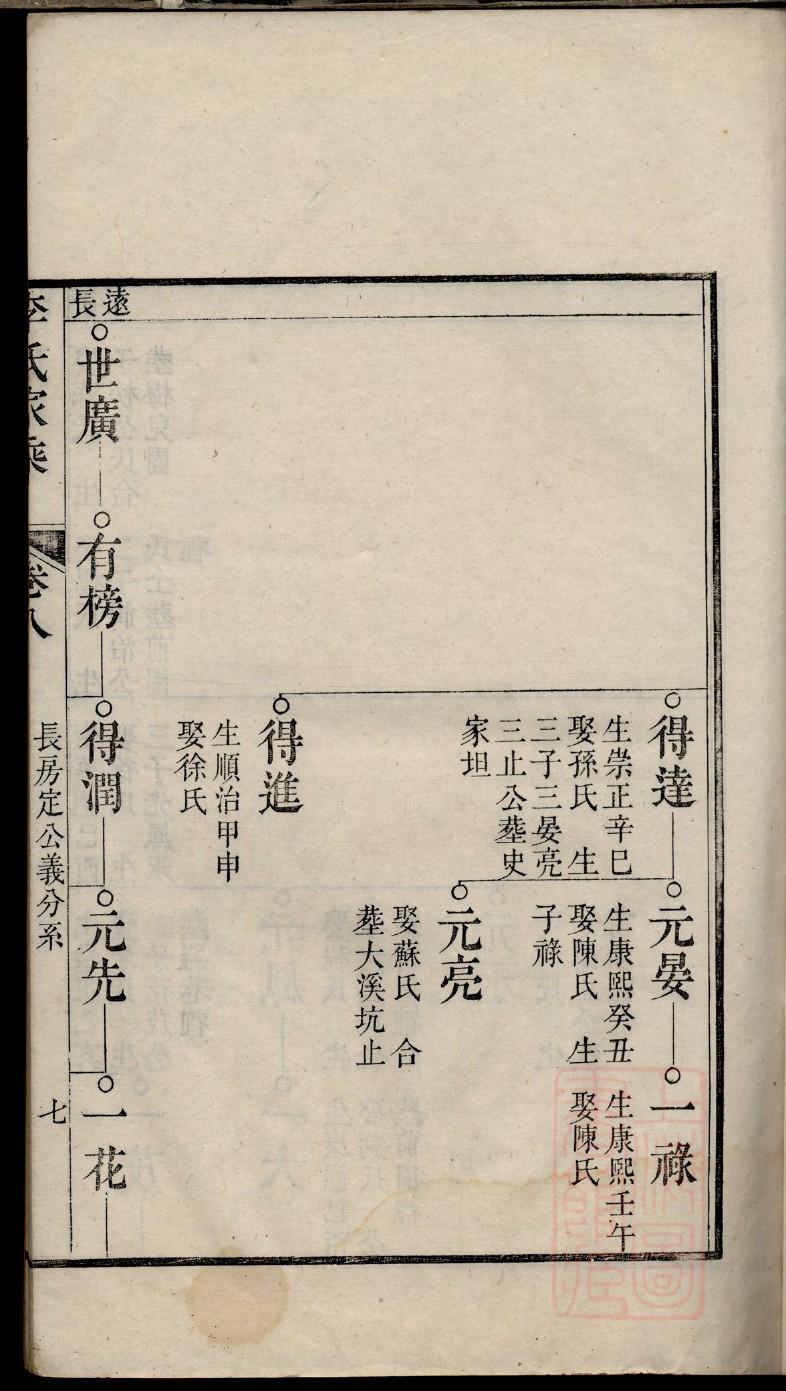 得達
生崇正辛巳
娶孫氏　生
三子三晏亮
三止公塟史
家坦
元晏
生康熙癸丑
娶陳氏　生
子祿
一祿
生康熙壬午
娶陳氏
元亮
娶蘇氏　合
塟大溪坑止
得進
生順治甲申
娶徐氏
遠長
世廣
有榜
得潤
元先
一花
李氏家乘
卷八
長房定公義分系
七